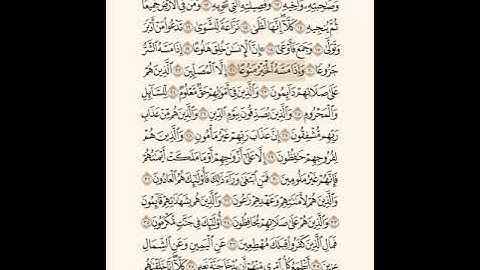 وَصَٰحِبَتِهِۦ وَأَخِيهِ ١٢ وَفَصِيلَتِهِ ٱلَّتِي تُـْٔوِيهِ ١٣ وَمَن فِي ٱلْأَرْضِ جَمِيعًا
ثُمَّ يُنجِيهِ ١٤ كَلَّآ إِنَّهَا لَظَىٰ ١٥ نَزَّاعَةً لِّلشَّوَىٰ ١٦ تَدْعُوا۟ مَنْ أَدْبَرَ
وَتَوَلَّىٰ ١٧ وَجَمَعَ فَأَوْعَىٰٓ ١٨ إِنَّ ٱلْإِنسَٰنَ خُلِقَ هَلُوعًا ١٩ إِذَا مَسَّهُ ٱلشَّرُّ
جَزُوعًا ٢٠ وَإِذَا مَسَّهُ ٱلْخَيْرُ مَنُوعًا ٢١ إِلَّا ٱلْمُصَلِّينَ ٢٢ ٱلَّذِينَ هُمْ
عَلَىٰ صَلَاتِهِمْ دَآئِمُونَ ٢٣ وَٱلَّذِينَ فِيٓ أَمْوَٰلِهِمْ حَقٌّ مَّعْلُومٌ ٢٤ لِّلسَّآئِلِ
وَٱلْمَحْرُومِ ٢٥ وَٱلَّذِينَ يُصَدِّقُونَ بِيَوْمِ ٱلدِّينِ ٢٦ وَٱلَّذِينَ هُم مِّنْ عَذَابِ
رَبِّهِم مُّشْفِقُونَ ٢٧ إِنَّ عَذَابَ رَبِّهِمْ غَيْرُ مَأْمُونٍ ٢٨ وَٱلَّذِينَ هُمْ
لِفُرُوجِهِمْ حَٰفِظُونَ ٢٩ إِلَّا عَلَىٰٓ أَزْوَٰجِهِمْ أَوْ مَا مَلَكَتْ أَيْمَٰنُهُمْ
فَإِنَّهُمْ غَيْرُ مَلُومِينَ ٣٠ فَمَنِ ٱبْتَغَىٰ وَرَآءَ ذَٰلِكَ فَأُو۟لَٰٓئِكَ هُمُ ٱلْعَادُونَ ٣١
وَٱلَّذِينَ هُمْ لِأَمَٰنَٰتِهِمْ وَعَهْدِهِمْ رَٰعُونَ ٣٢ وَٱلَّذِينَ هُم بِشَهَٰدَٰتِهِمْ قَآئِمُونَ
٣٣ وَٱلَّذِينَ هُمْ عَلَىٰ صَلَاتِهِمْ يُحَافِظُونَ ٣٤ أُو۟لَٰٓئِكَ فِي جَنَّٰتٍ مُّكْرَمُونَ ٣٥
فَمَالِ ٱلَّذِينَ كَفَرُوا۟ قِبَلَكَ مُهْطِعِينَ ٣٦ عَنِ ٱلْيَمِينِ وَعَنِ ٱلشِّمَالِ
عِزِينَ ٣٧ أَيَطْمَعُ كُلُّ ٱمْرِئٍ مِّنْهُمْ أَن يُدْخَلَ جَنَّةَ نَعِيمٍ ٣٨ كَلَّآ إِنَّا خَلَقْنَٰهُم